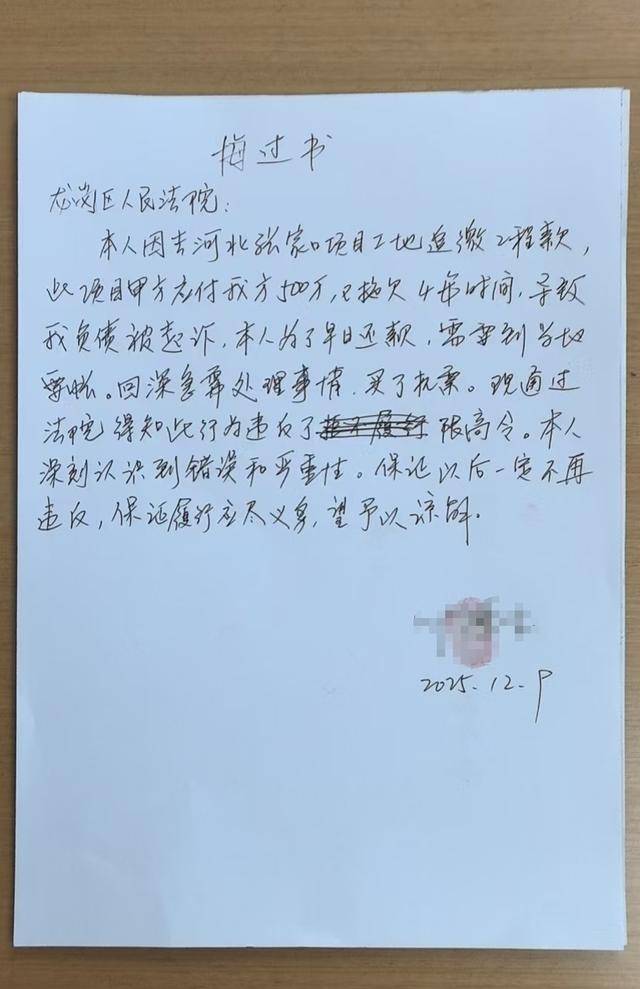 悔过书
龙岗区人民法院：
本人因去河北张家口项目工地追缴工程款，
此项目甲方应付我方500万，已拖欠4年时间，导致
我负债被起诉，本人为了早日还款，需要到当地
要账。回深急需处理事情，买了机票。现通过
法院得知此行为违反了限高令。本人
深刻认识到错误和严重性。保证以后一定不再
违反，保证履行应尽义务，望予以谅解。
2025.12.9